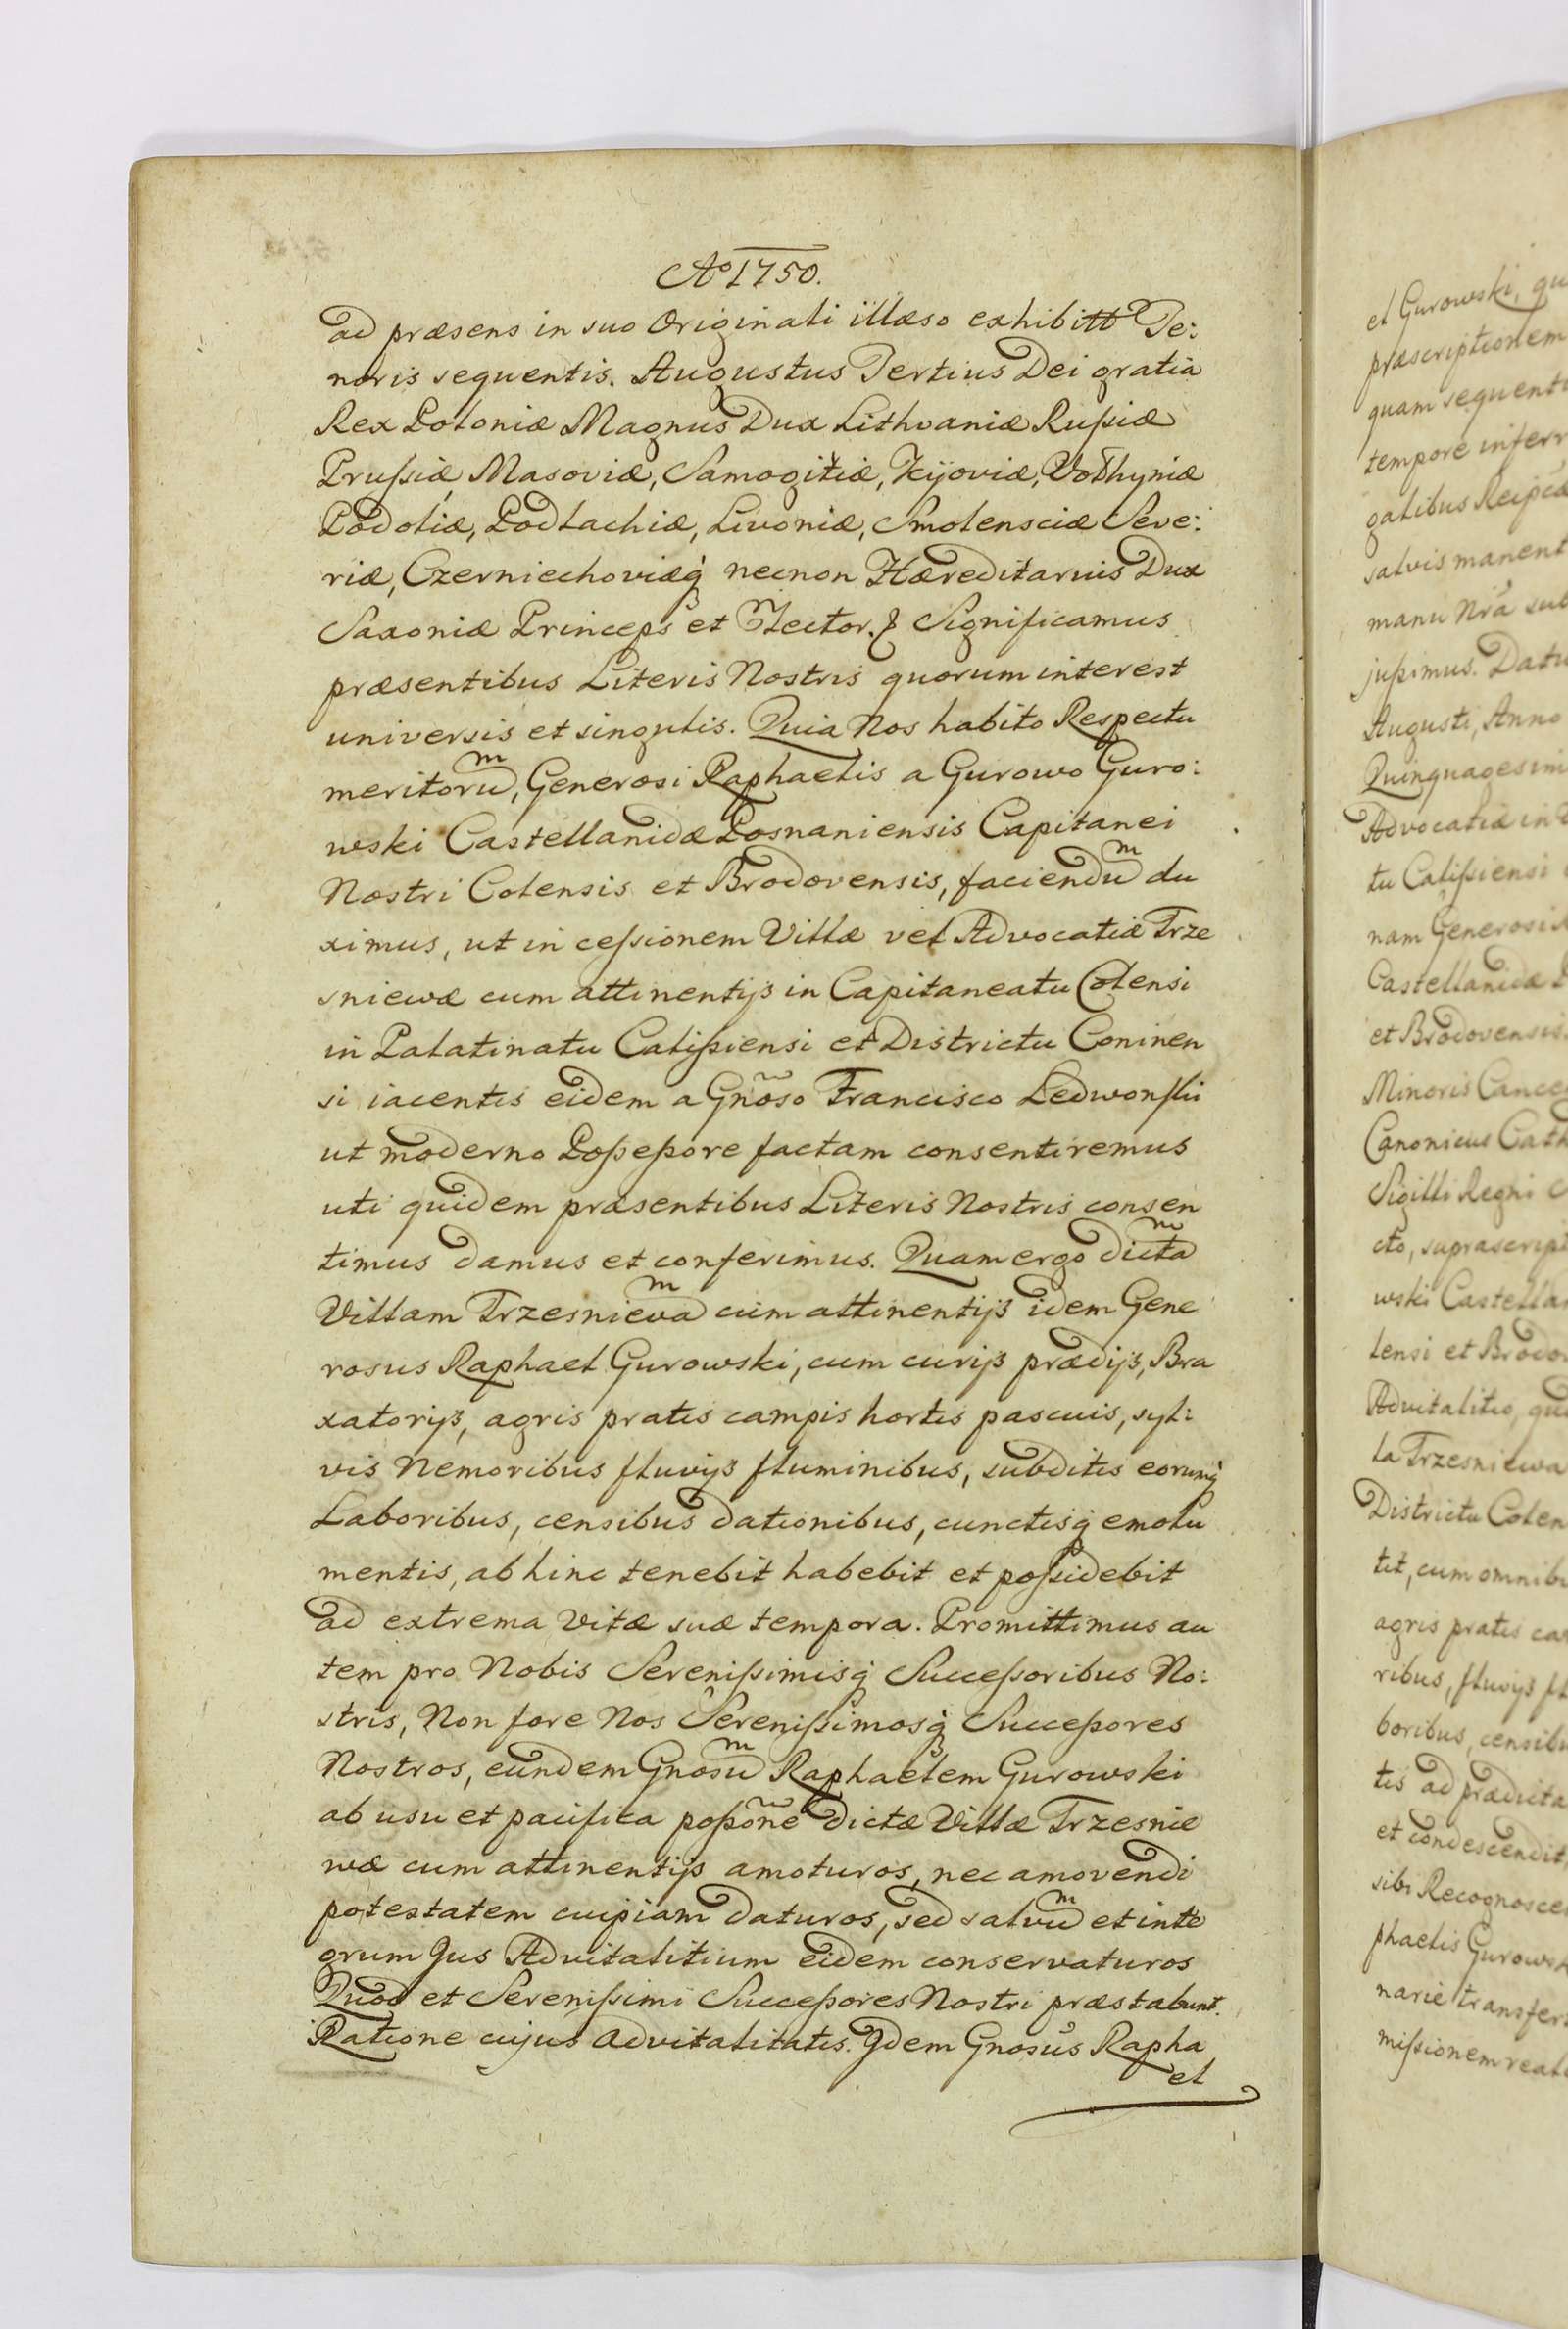 Aº 1750.
ad præsens in suo Originali illæso exhibitt Te:
noris sequentis. Augustus Tertius Dei gratia
Rex Poloniæ Magnus Dux Lithvaniæ Rußiæ
Prußiæ, Masoviæ, Samogitiæ, Kijoviæ, Volhyniæ
Podoliæ, Podlachiæ, Livoniæ, Smolensciæ Seve:
riæ, Czerniechoviæq́ȝ necnon Hæreditarius Dux
Saxoniæ Princeps et Elector. Significamus
præsentibus Literis Nostris quorum interest
universis et singulis. Quia Nos habito Respectu
meritoruͫ, Generosi Raphaelis a Gurowo Guro:
wski Castellanidæ Posnaniensis Capitanei
Nostri Colensis et Brodovensis, facienduͫ du
ximus, ut in ceßionem Villæ vel Advocatiæ Trze
sniewæ cum attinentijs in Capitaneatu Colensi
in Palatinatu Calißiensi et Districtu Coninen
si iacentis eidem a Gnõso Francisco Ledwonski
ut moderno Poßeßore factam consentiremus
uti quidem præsentibus Literis Nostris consen
timus damus et conferimus. Quam ergo dictaͫ
Villam Trzesnievaͫ cum attinentijs idem Gene
rosus Raphael Gurowski, cum curijs prædijs, Bra
xatorijs, agris pratis campis hortis pascuis, syl:
vis Nemoribus fluvijs fluminibus, subditis eorumq́
Laboribus, censibus dationibus, cunctisq́ emolu
mentis, ab hinc tenebit habebit et poßidebit
ad extrema vitæ suæ tempora. Promittimus au
tem pro Nobis Serenißimisq́ Succeßoribus No:
stris, Non fore Nos Serenißimosq́ȝ Succeßores
Nostros, eundem Gnosuͫ Raphaelem Gurowski
ab usu et pacifica poßõne dictæ Villæ Trzesnie
wæ cum attinentijs amoturos, nec amovendi
potestatem cuipiam daturos, sed salvuͫ et inte
grum Jus Advitalitium eidem conservaturos
Quod et Serenißimi Succeßores Nostri præstabunt.
Ratione cujus Advitalitatis. Jdem Gnosus Rapha
el
et Gurowski, qu
præscriptionem
quam sequenti
tempore inferr
galibus Reipcæ
salvis manent
manu Nrá sub
jußimus. Datu
Augusti, Anno
Quinquagesim
Advocatiæ in
tu Calißiensi
nam Generosi
Castellanidæ P
et Brodovensis.
Minoris Cance
Canonicus Cath
Sigilli Regni
cto, suprascript
wski Castella
lensi et Brodo
Advitalitio, qu
la Trzesniewa
Districtu Colen
tit, cum omnib
agris pratis ca
ribus, fluvijs fl
boribus, censib
tis ad prædicta
et condescendit,
sibi Recognosce
phaelis Gurowsk
narie transfer
mißionem reale